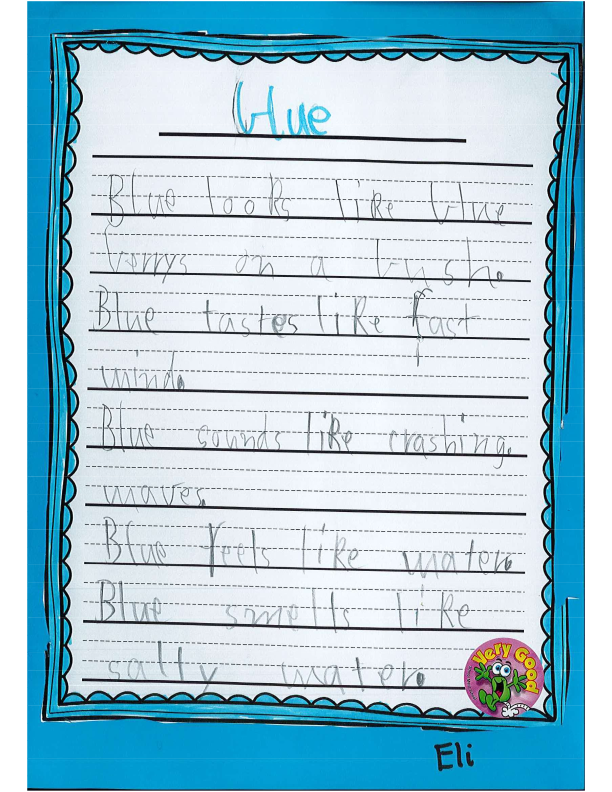 blue
Blue looks like blue
berrys on a bush.
Blue tastes like fast
wind.
Blue sounds like crashing.
waves.
Blue feels like water.
Blue smells like
salty water.
Very Good
Eli